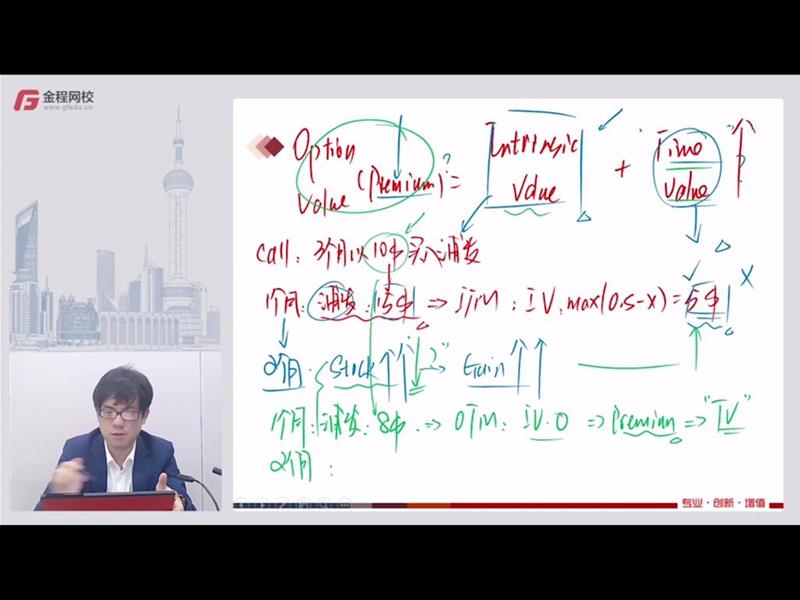 金程网校
www.gfedu.cn
Option Value (Premium) = Intrinsic Value + Time Value
call: 3个月以10中买入浦发
1个月: 浦发: 15中 => ITM: IV. max(0.S-X) = 5中 X
2个月: Stock↑↑ Gain↑↑
1个月: 浦发: 8中 => OTM: IV. 0 => Premium => "TV"
2个月:
专业·创新·增值